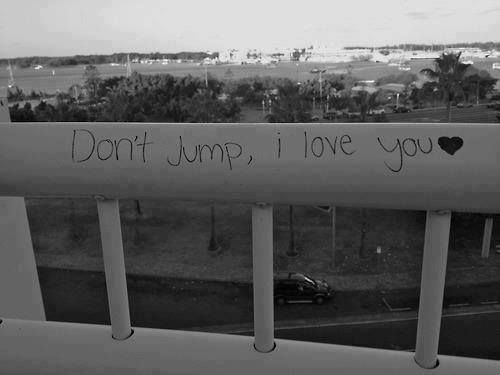 Don't jump, i love you♥